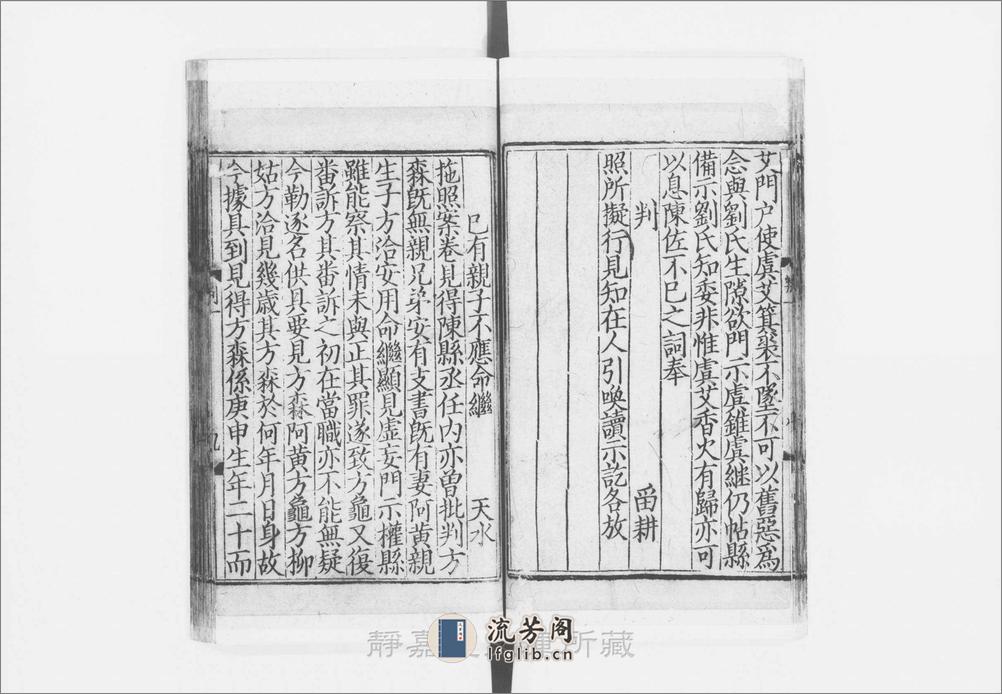 艾門户使虞艾箕裘不墜不可以舊惡爲
念與劉氏生隙欲門示虞錐虞継仍帖縣
備示劉氏知委非惟虞艾香火有歸亦可
以息陳佐不巳之詞奉
判 留耕
照所擬行見知在人引喚讀示訖各放
巳有親子不應命繼 天水
拖照案卷見得陳縣丞任内亦曾批判方
森旣無親兄弟安有支書旣有妻阿黄親
生子方洽安用命繼顯見虚妄門示權縣
雖能察其情未與正其罪遂致方龜又復
畨訴方其畨訴之初在當職亦不能無疑
今勒逐名供具要見方森阿黄方龜方柳
姑方洽見幾歲其方森於何年月日身故
今據具到見得方森係庚申生年二十而
九
靜嘉 所藏
流芳阁
lfglib.cn